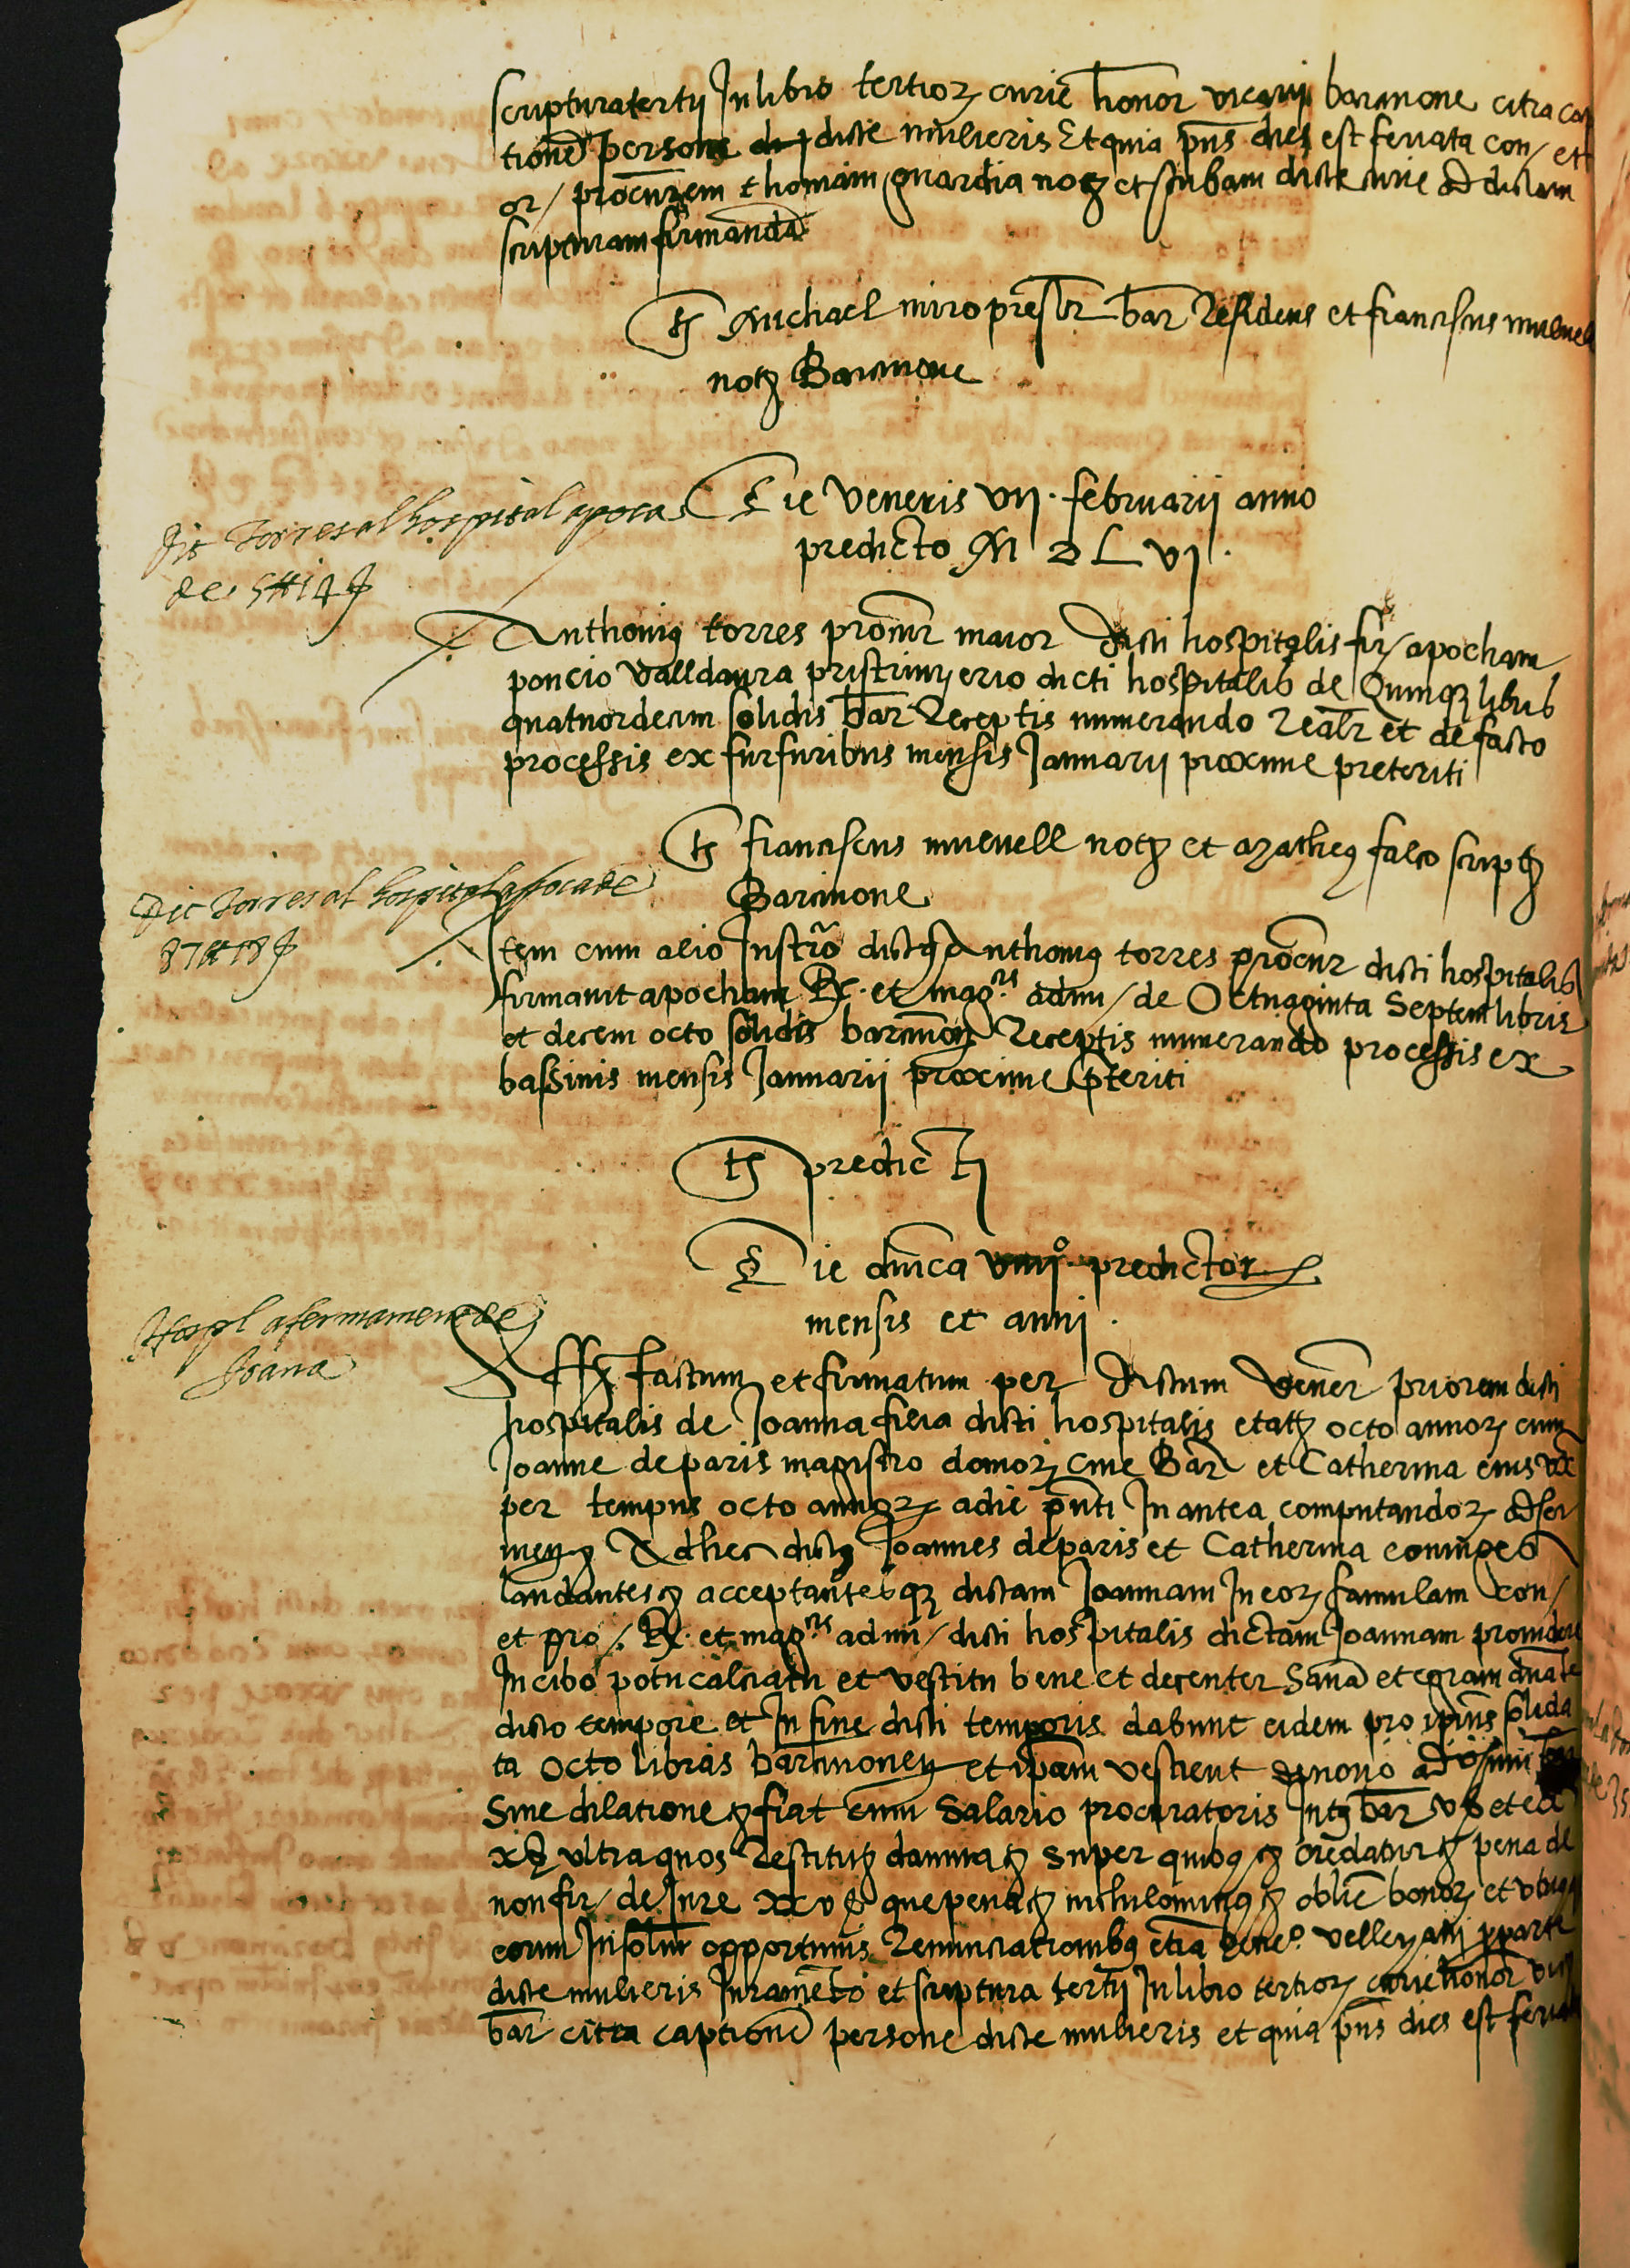 scriptura tertii In libro tertioꝝ curie honor vicarii barcinone citra cap
tionē persone dicte mulieris Et quia pn̄s dies est feriata con/ et
or/ procurem thomam guardia notꝫ et scribam dicte curie ad dictam
scripturam firmandā
tꝭ Michael miro presbr̄ bar̄ Residens et franciscus mulnell
notꝫ Barcinone
Die veneris vij. februarij anno
predicto M D L vj.
dit torres al hospital apoca
de 5 ₶ 14 ẜ
Anthoniꝯ torres procur̄ maior dicti hospitalis fir/ apocham
poncio valldaura pristrinyerio dicti hospitalis de Quinqꝫ libris
quatuordecim solidis bar̄ Receptis numerando Realr̄ et de facto
processis ex furfuribus mensis Januarij proxime preteriti
tꝭ franciscus mulnell notꝫ et Matheꝯ falco scriptꝫ
Barcinone
Dit torres al hospital apoca de
87 ₶ 18 ẜ
Item cum alio Instrō dictꝯ Anthoniꝯ torres procur̄ dicti hospitalis
firmavit apocham Rx. et mag.cis admi/ de Octuaginta Septem libris
et decem octo solidis barcinoñ Receptis numerando processis ex
bassinis mensis Januarij proxime pteriti
tꝭ predicti
Die dn̄ica viiij.o predictor
mensis et anni.
Hospl afermament de
Joana
Affꝫ factum et firmatum per dictum vener̄ priorem dicti
hospitalis de Joanna filia dicti hospitalis etatꝫ octo annoꝝ cum
Joanne de paris magistro domoꝝ ciue Bar̄ et Catherina eius vx
per tempus octo annoꝝ a die pn̄ti In antea computandoꝝ ad ser
Ad hec dictꝯ Joannes de paris et Catherina coniuges
laudantesꝫ acceptantesqꝫ dictam Joannam In eoꝝ famulam con/
et pro/. Rx. et mag.cis admi/ dicti hospitalis dictam Joannam prouidere
In cibo potu calciatu et vestitu bene et decenter Sanā et egram durāte
dicto tempore et In fine dicti temporis dabunt eidem pro ipius solida
ta octo libras barcinoneñ et ipam vestient de nouo
Sine dilatione ꝫ fiat cum Salario procuratoris Intꝫ bar̄ vẜ et ex
xẜ vltra quos Restitutꝫ damna ꝫ super quibꝯ ꝫ credatur ꝫ pena de
non fir/ de Jure xxvẜ que pena ꝫ nichilominꝯ ꝫ oblīe bonoꝝ et vtriꝯqꝫ
eorum In solm̄ opportunis Renunciationibꝯ etiā bene.o velleyani pparte
dicte mulieris Juramento et scriptura tertij In libro tertioꝝ curie honor vic
bar̄ citra captionē persone dicte mulieris et quia pn̄s dies est feria